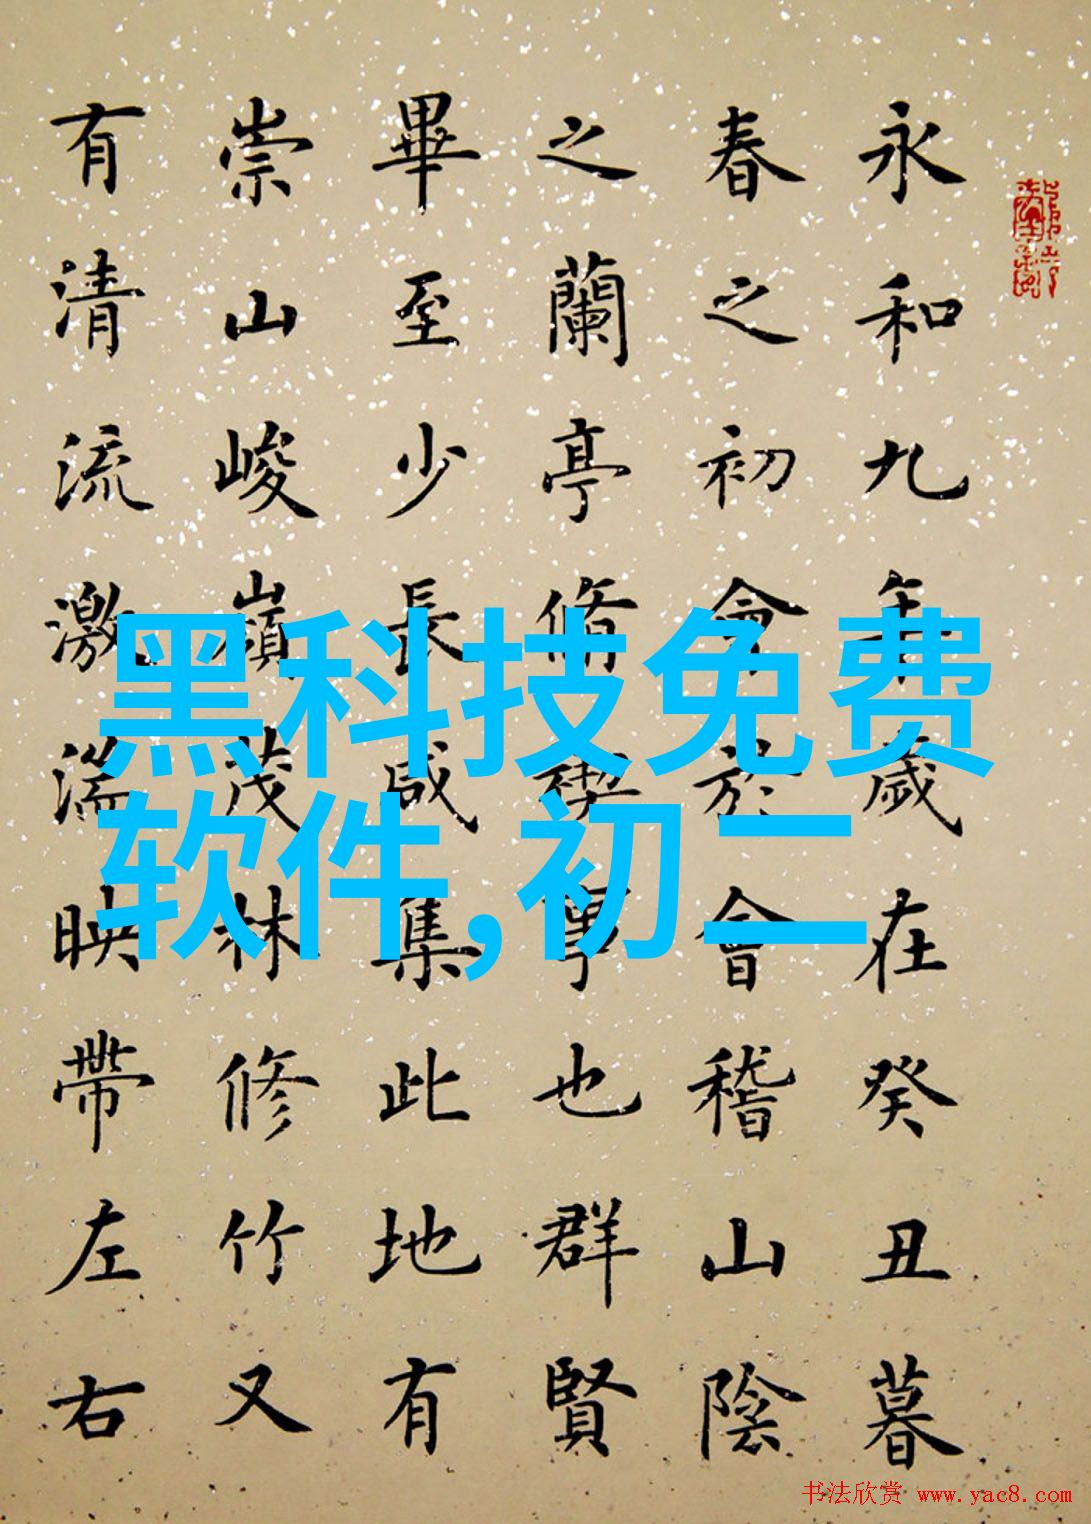 永和九年歲在癸丑暮
春之初會於會稽山陰
之蘭亭脩禊事也群賢
畢至少長咸集此地有
崇山峻嶺茂林修竹又
有清流激湍映帶左右
黑科技免费
软件,初二
书法欣赏 www.yac8.com